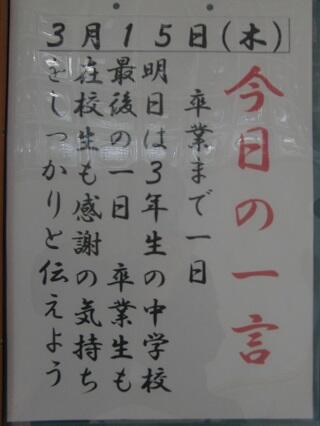 3月15日(木)
今日の一言
卒業まで一日
明日は3年生の中学校
最後の一日 卒業生も
在校生も感謝の気持ち
をしっかりと伝えよう